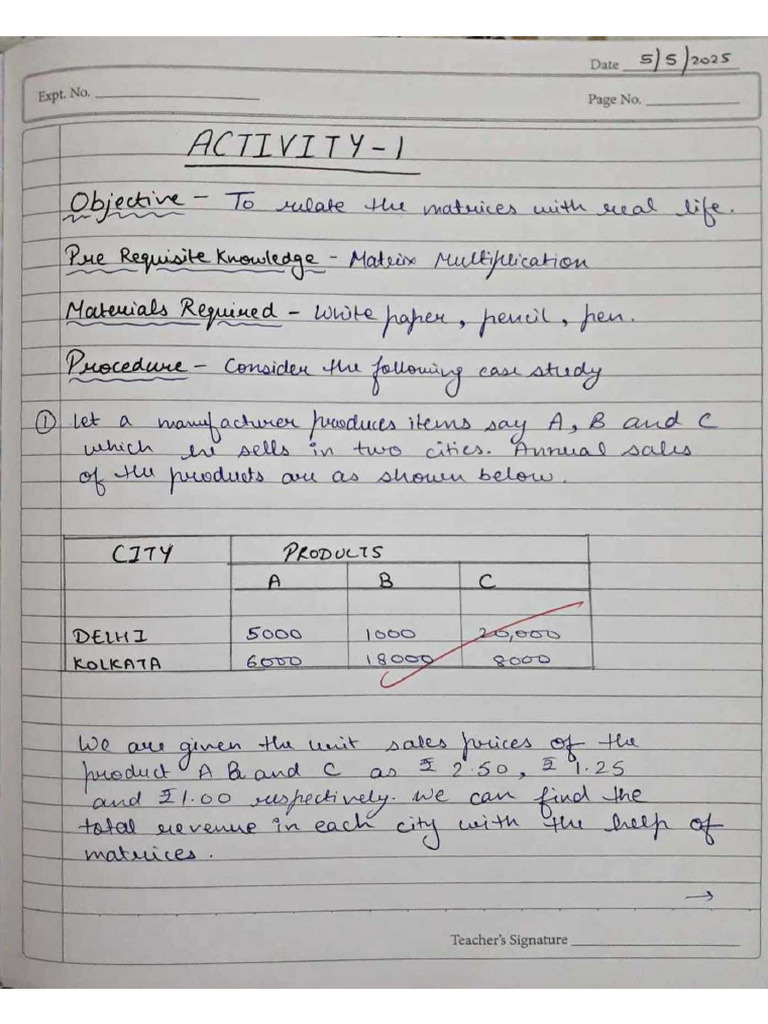 Date 5/5/2025
Expt. No.
Page No.
ACTIVITY-1
Objective - To relate the matrices with real life.
Pre Requisite Knowledge - Matrix Multiplication
Materials Required - White paper, pencil, pen.
Procedure - Consider the following case study
① Let a manufacturer produces items say A, B and C
which he sells in two cities. Annual sales
of the products are as shown below.
CITY PRODUCTS
A B C
DELHI 5000 1000 20,000
KOLKATA 6000 18000 8000
We are given the unit sales prices of the
product A B and C as ₹ 2.50, ₹ 1.25
and ₹1.00 respectively. We can find the
total revenue in each city with the help of
matrices.
→
Teacher's Signature